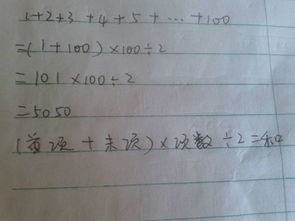 1+2+3+4+5+…+100
=(1+100)×100÷2
=101×100÷2
=5050
(首项+末项)×项数÷2=和